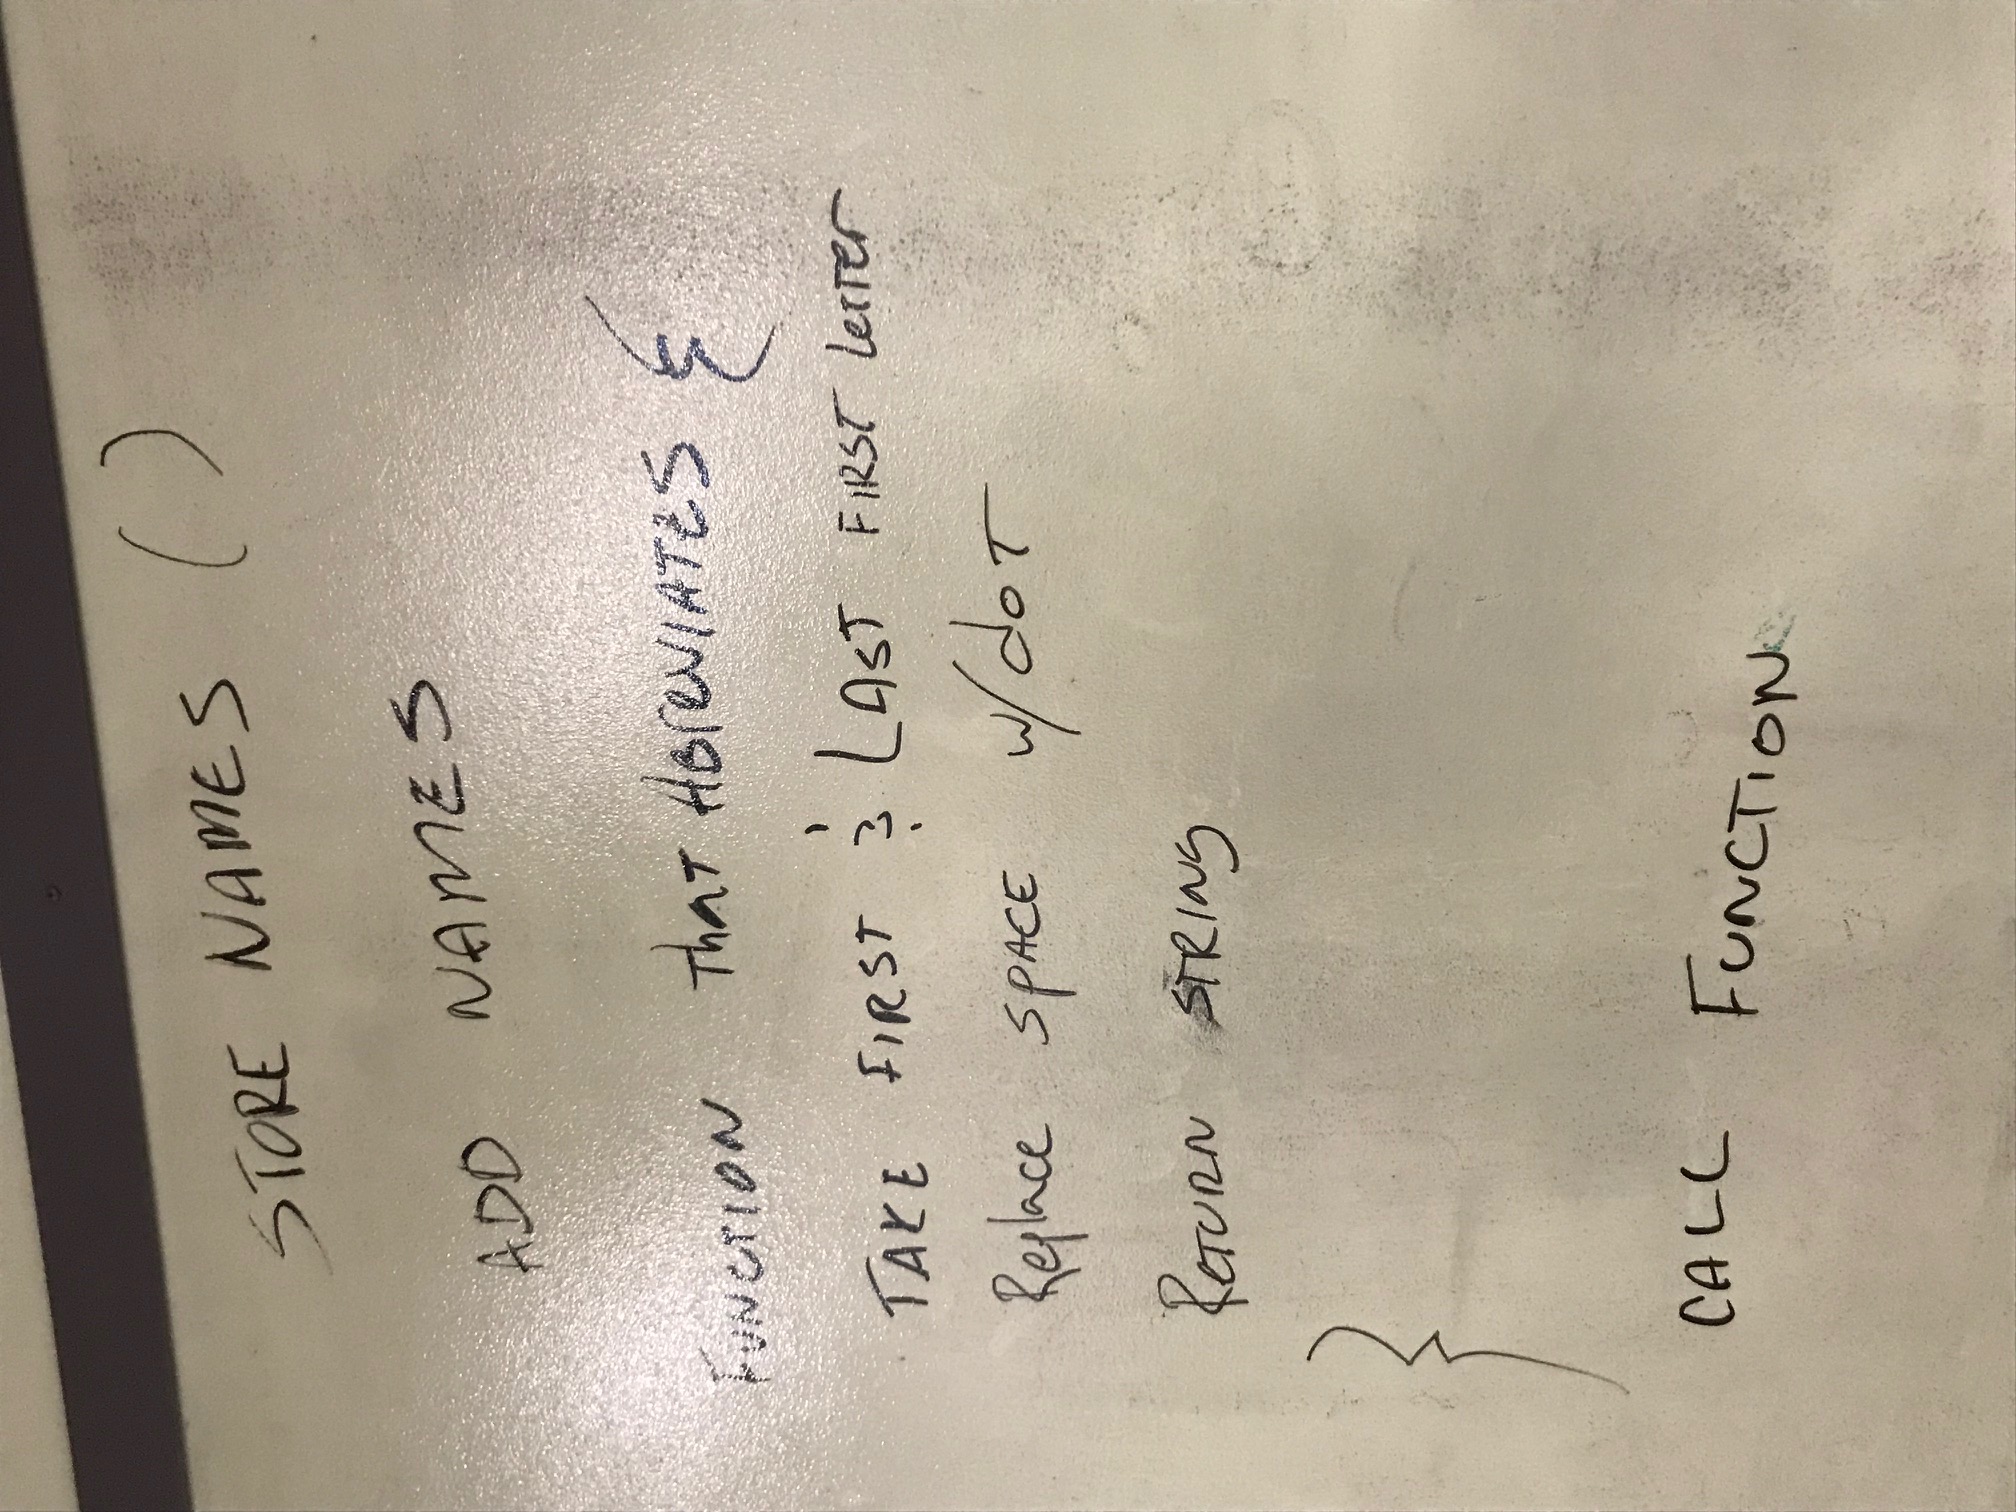 STORE NAMES ()
ADD NAMES
FUNCTION That AbreviATES {
TAKE FIRST & LAST FIRST LETTER
Replace SPACE w/doT
RETURN STRING
}
CALL FUNCTION